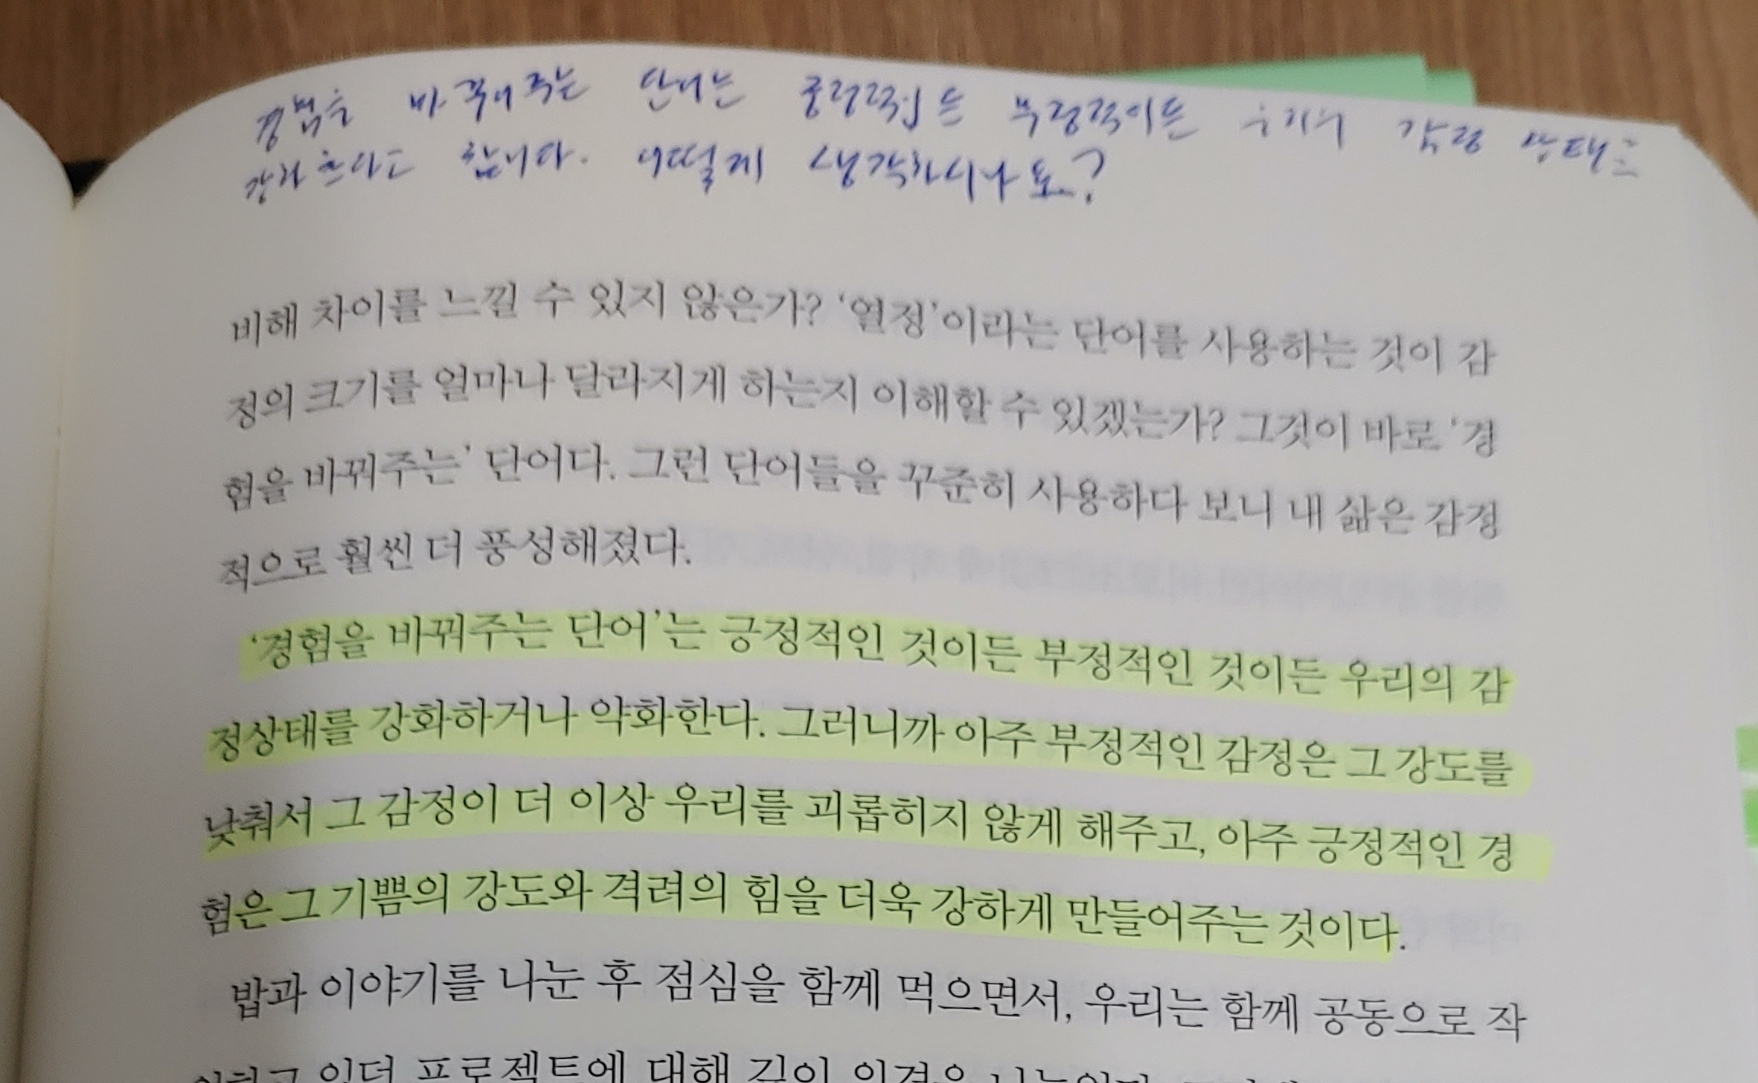 경험을 바꿔주는 단어는 긍정적이든 부정적이든 우리의 감정 상태를
강화한다고 합니다. 어떻게 생각하시나요?
비해 차이를 느낄 수 있지 않은가? ‘열정’이라는 단어를 사용하는 것이 감
정의 크기를 얼마나 달라지게 하는지 이해할 수 있겠는가? 그것이 바로 ‘경
험을 바꿔주는’ 단어다. 그런 단어들을 꾸준히 사용하다 보니 내 삶은 감정
적으로 훨씬 더 풍성해졌다.
‘경험을 바꿔주는 단어’는 긍정적인 것이든 부정적인 것이든 우리의 감
정상태를 강화하거나 약화한다. 그러니까 아주 부정적인 감정은 그 강도를
낮춰서 그 감정이 더 이상 우리를 괴롭히지 않게 해주고, 아주 긍정적인 경
험은 그 기쁨의 강도와 격려의 힘을 더욱 강하게 만들어주는 것이다.
밥과 이야기를 나눈 후 점심을 함께 먹으면서, 우리는 함께 공동으로 작
있던 프로젝트에 대해 깊이